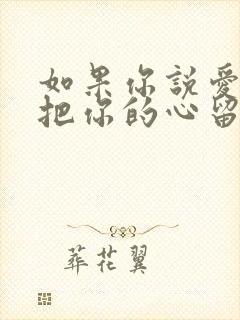 如果你説愛
把你的心留
葬花翼